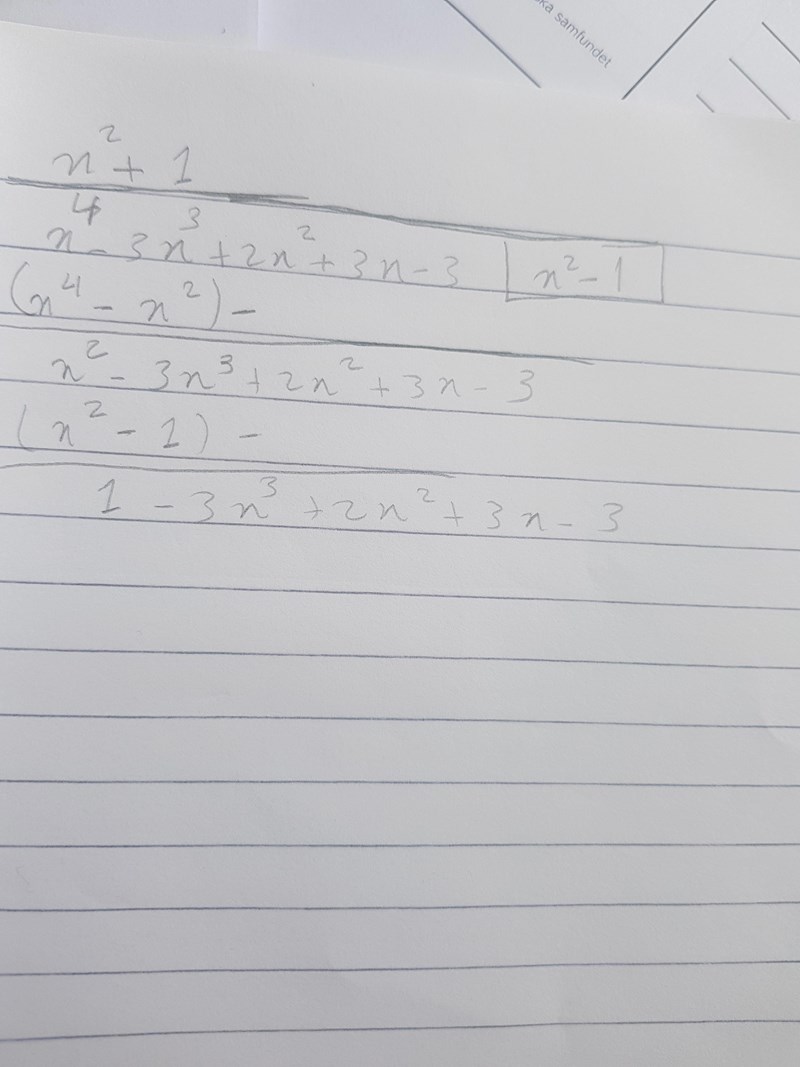 ka samfundet
x² + 1
x⁴ - 3x³ + 2x² + 3x - 3 x² - 1
(x⁴ - x²) -
x² - 3x³ + 2x² + 3x - 3
(x² - 1) -
1 - 3x³ + 2x² + 3x - 3